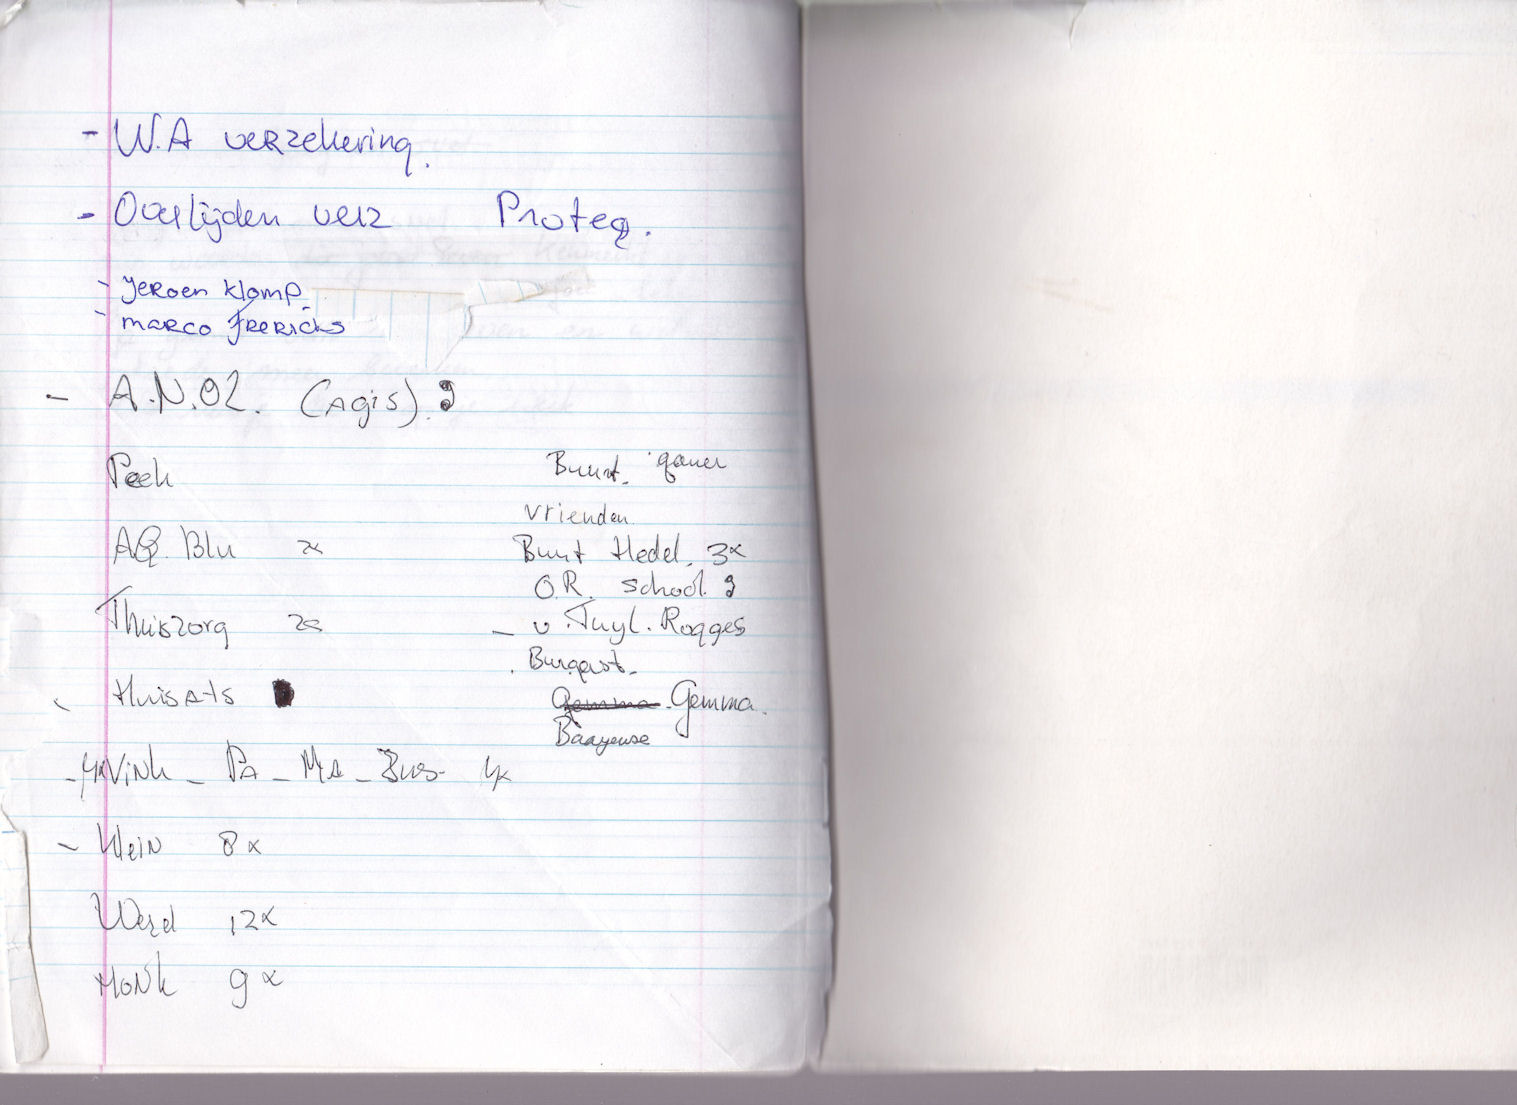 - W.A verzekering.
- Overlijden verz Proteq.
- Jeroen Klomp.
- Marco Frerichs
- A.N.O2. (Agis). ?
Peek
AQ. Blu 2x
Thuiszorg 2x
Huisarts
- 4x Vink - PA - MA - Zus - 4x
- Klein 8x
Werd 12x
Monk 9x
Buurt.
vrienden
Buurt Hedel. 3x
O.R. school ?
- v. Tuyl. Rogges
. Burgerst.
Gemma Gemma.
Baayense